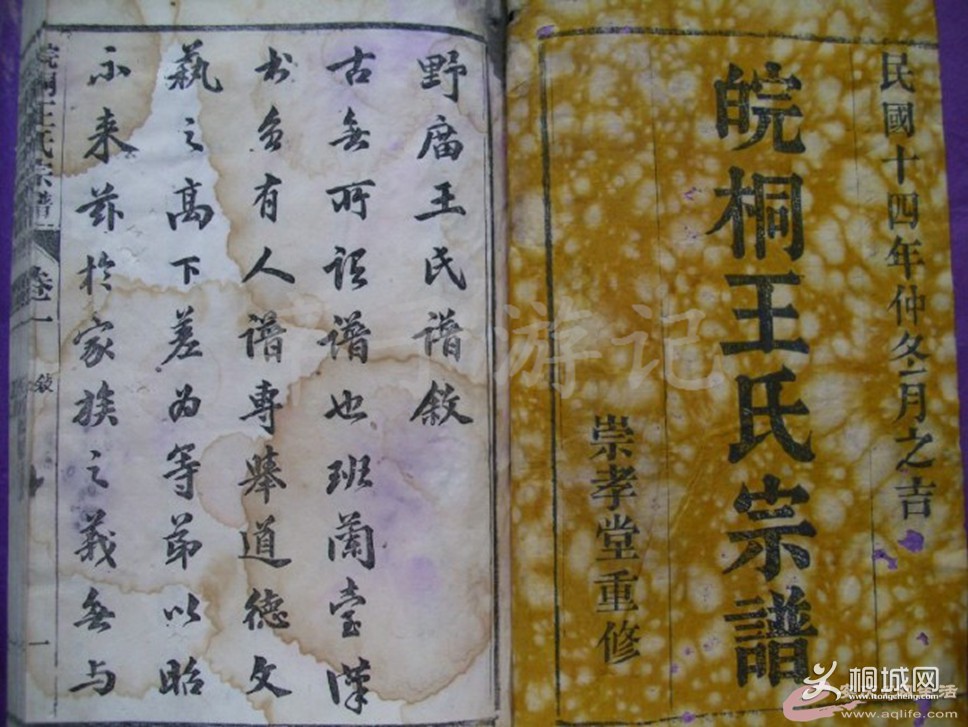 民國十四年仲冬月之吉
皖桐王氏宗譜
崇孝堂重修
野廇王氏譜敘
古無所謂譜也班蘭臺漢
书自有人譜專舉道德文
藝之高下差为等第以昭
示来茲於家族之義無与
皖桐王氏宗譜
卷一
敘
一
游记
桐城网
www.itongcheng.com
生活
www.aqlife.com